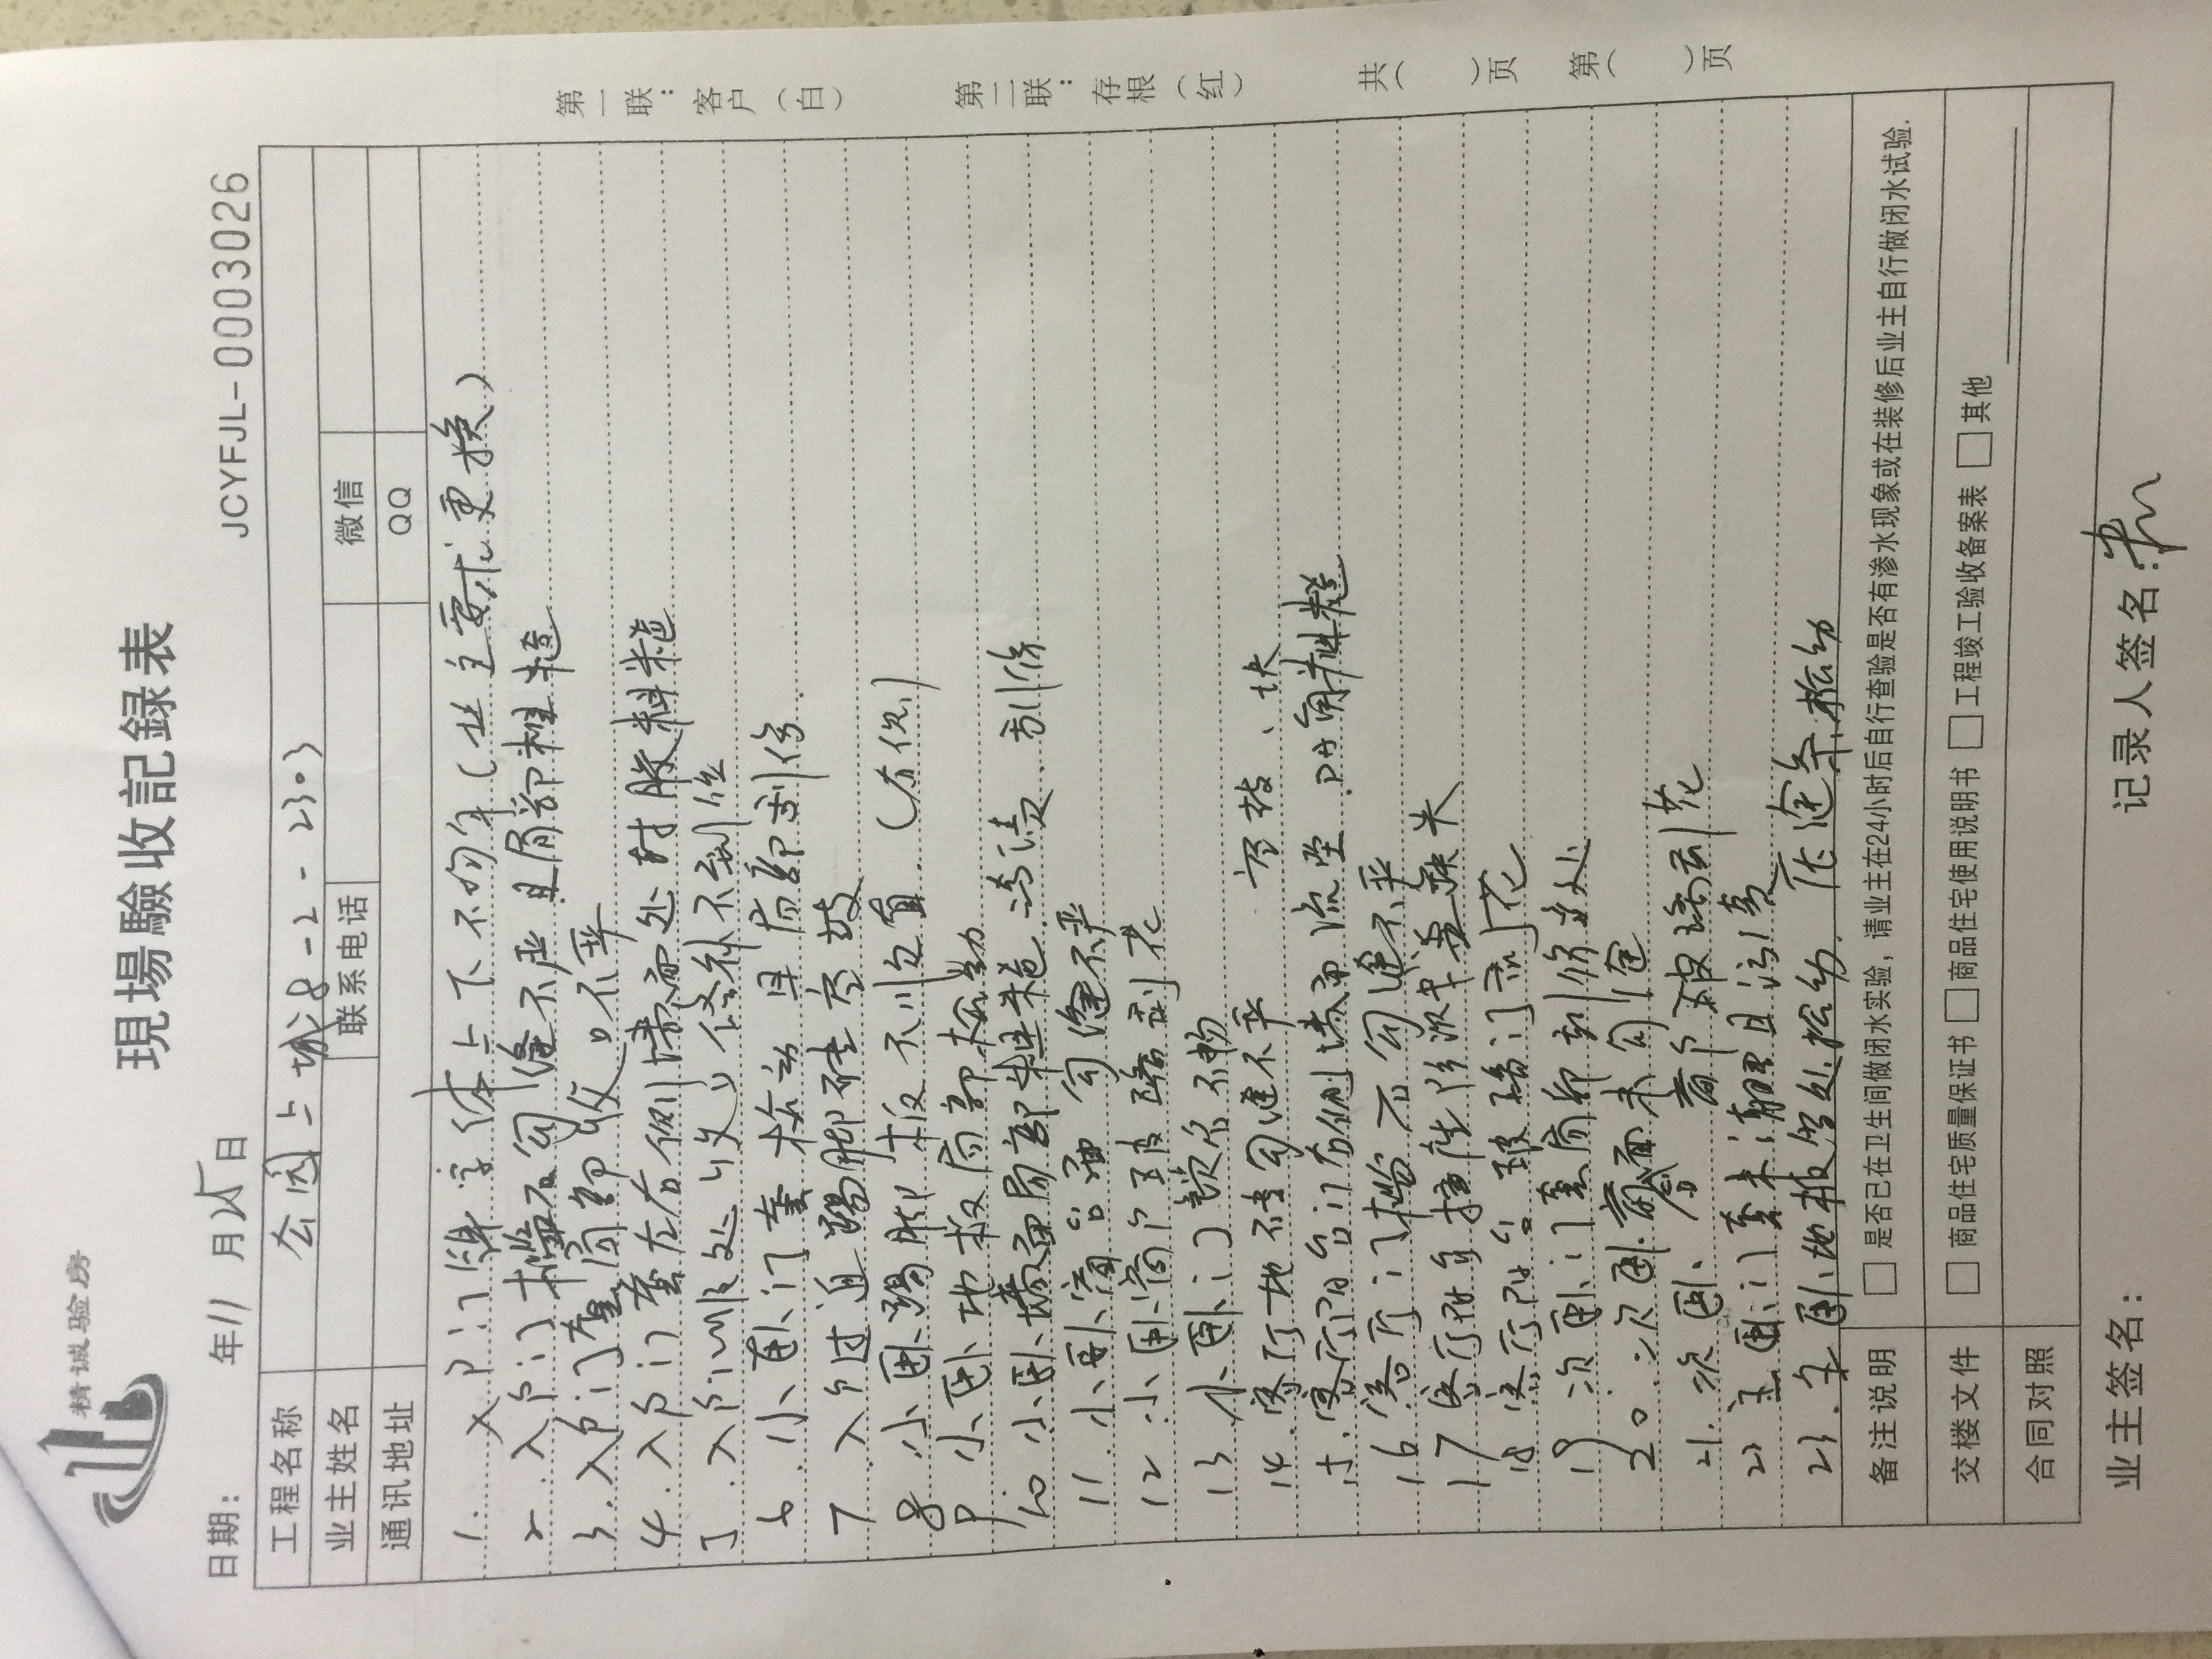 精诚验房
現場驗收記録表
日期: 年11月25日 JCYFJL-0003026
工程名称 公园上城:8-2-2303
业主姓名 联系电话 微信
通讯地址 QQ
1. 入户门牌字体上下不均匀(业主要求更换)
2. 入户门槛石勾缝不严且局部粗糙
3. 入户门套局部收口不严
4. 入户门套左右侧墙面处封胶粗糙
5. 入户门顺处收口修补不到位
6. 小卧门套松动且局部刮伤.
7 入户过道踢脚砖空鼓
8 .小卧踢脚板不顺直.(右侧)
9. 小卧地板局部松动
10 小卧墙面局部粗糙.污渍、刮伤
11. 小卧窗台面勾缝不严
12 .小卧窗户玻璃刮花
13 .小卧门锁不畅
14. 客厅地砖勾缝不严 空鼓、块
15. 客厅阳台门右侧墙面流坠.阴角粗糙
16 客厅门槛石勾缝不严
17 客厅阳台插座防溅盖缺失
18 客厅阳台玻璃门刮花
19 次卧门套局部刮伤多处
20. 次卧窗台面未勾缝
21. 次卧 窗户玻璃刮花
22 主卧门套未清理且污渍
23. 主卧地板多处松动.压缝条松动
备注说明 □ 是否已在卫生间做闭水实验，请业主在24小时后自行查验是否有渗水现象或在装修后业主自行做闭水试验.
交楼文件 □ 商品住宅质量保证书 □ 商品住宅使用说明书 □ 工程竣工验收备案表 □ 其他
合同对照
业主签名: 记录人签名:
第一联：客户（白） 第二联：存根（红） 共（ ）页 第（ ）页